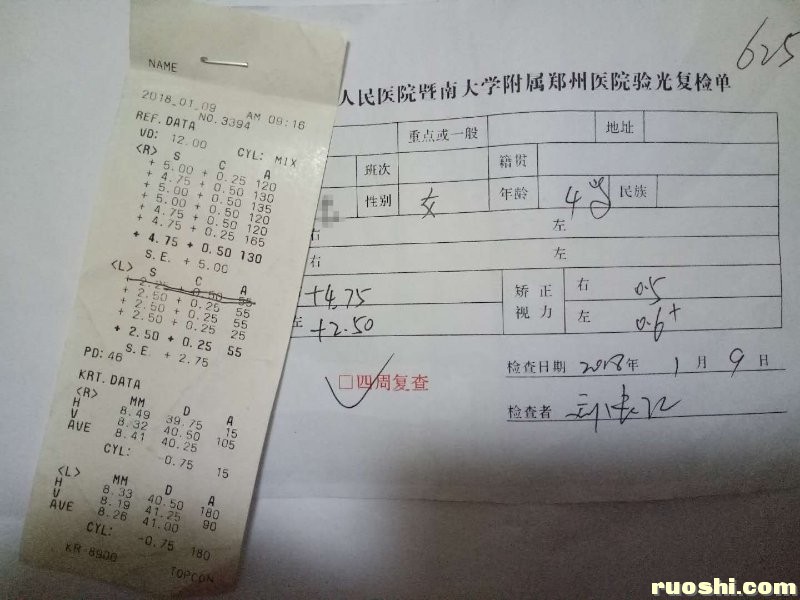 NAME
2018_01_09 AM 09:16
NO.3394
REF.DATA
VD: 12.00 CYL: MIX
<R> S C A
+ 5.00 + 0.25 120
+ 4.75 + 0.50 130
+ 5.00 + 0.50 135
+ 5.00 + 0.50 120
+ 4.75 + 0.50 120
+ 4.75 + 0.25 165
+ 4.75 + 0.50 130
S.E. + 5.00
<L> S C A
+ 2.25 + 0.50 55
+ 2.50 + 0.25 55
+ 2.50 + 0.25 55
+ 2.50 + 0.25 25
+ 2.50 + 0.25 55
S.E. + 2.75
PD: 46
KRT.DATA
<R> MM D A
H 8.49 39.75 15
V 8.32 40.50 105
AVE 8.41 40.25
CYL: -0.75 15
<L> MM D A
H 8.33 40.50 180
V 8.19 41.25 90
AVE 8.26 41.00
CYL: -0.75 180
KR-8900 TOPCON
625
人民医院暨南大学附属郑州医院验光复检单
重点或一般 地址
班次 籍贯
性别 女 年龄 4岁 民族
右 左
右 左
+4.75 矫正视力 右 0.5
左 +2.50 左 0.6+
□四周复查
检查日期 2018年 1月 9日
检查者
ruoshi.com